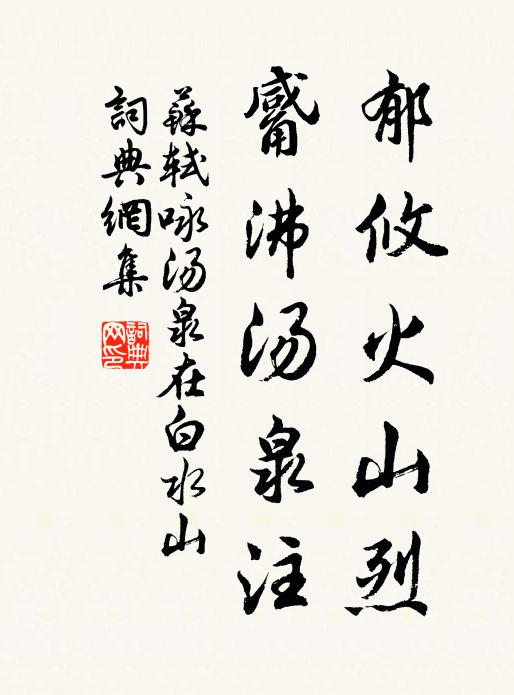 郁攸火山烈
觱沸汤泉注
蘇軾咏汤泉在白水山
詞典網集
詞典网印